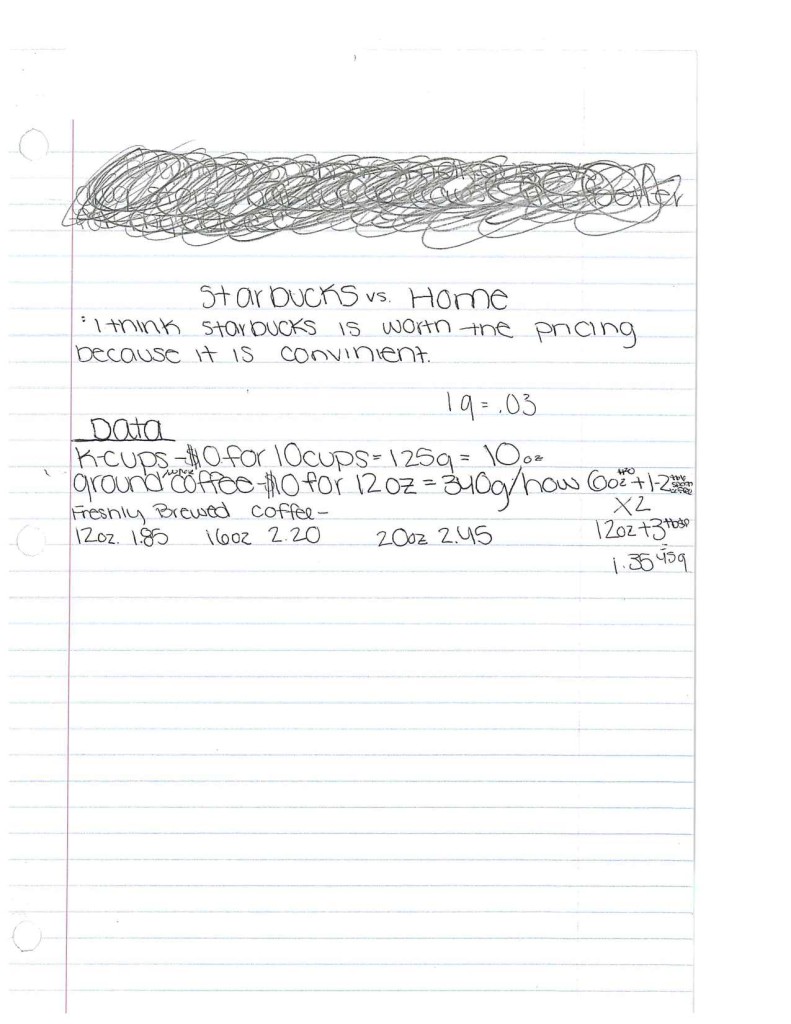 better
Starbucks vs. Home
: I think starbucks is worth the pricing
because it is convinient.
1g = .03
Data
K-cups - $10 for 10cups = 125g = 10 oz
ground coffee - $10 for 12 oz = 340g/how 6oz H2O + 1-2
Freshly Brewed coffee-
X2
12oz. 1.85 16oz 2.20 20oz 2.45
12oz + 3 tbsp
= 45g
1.35